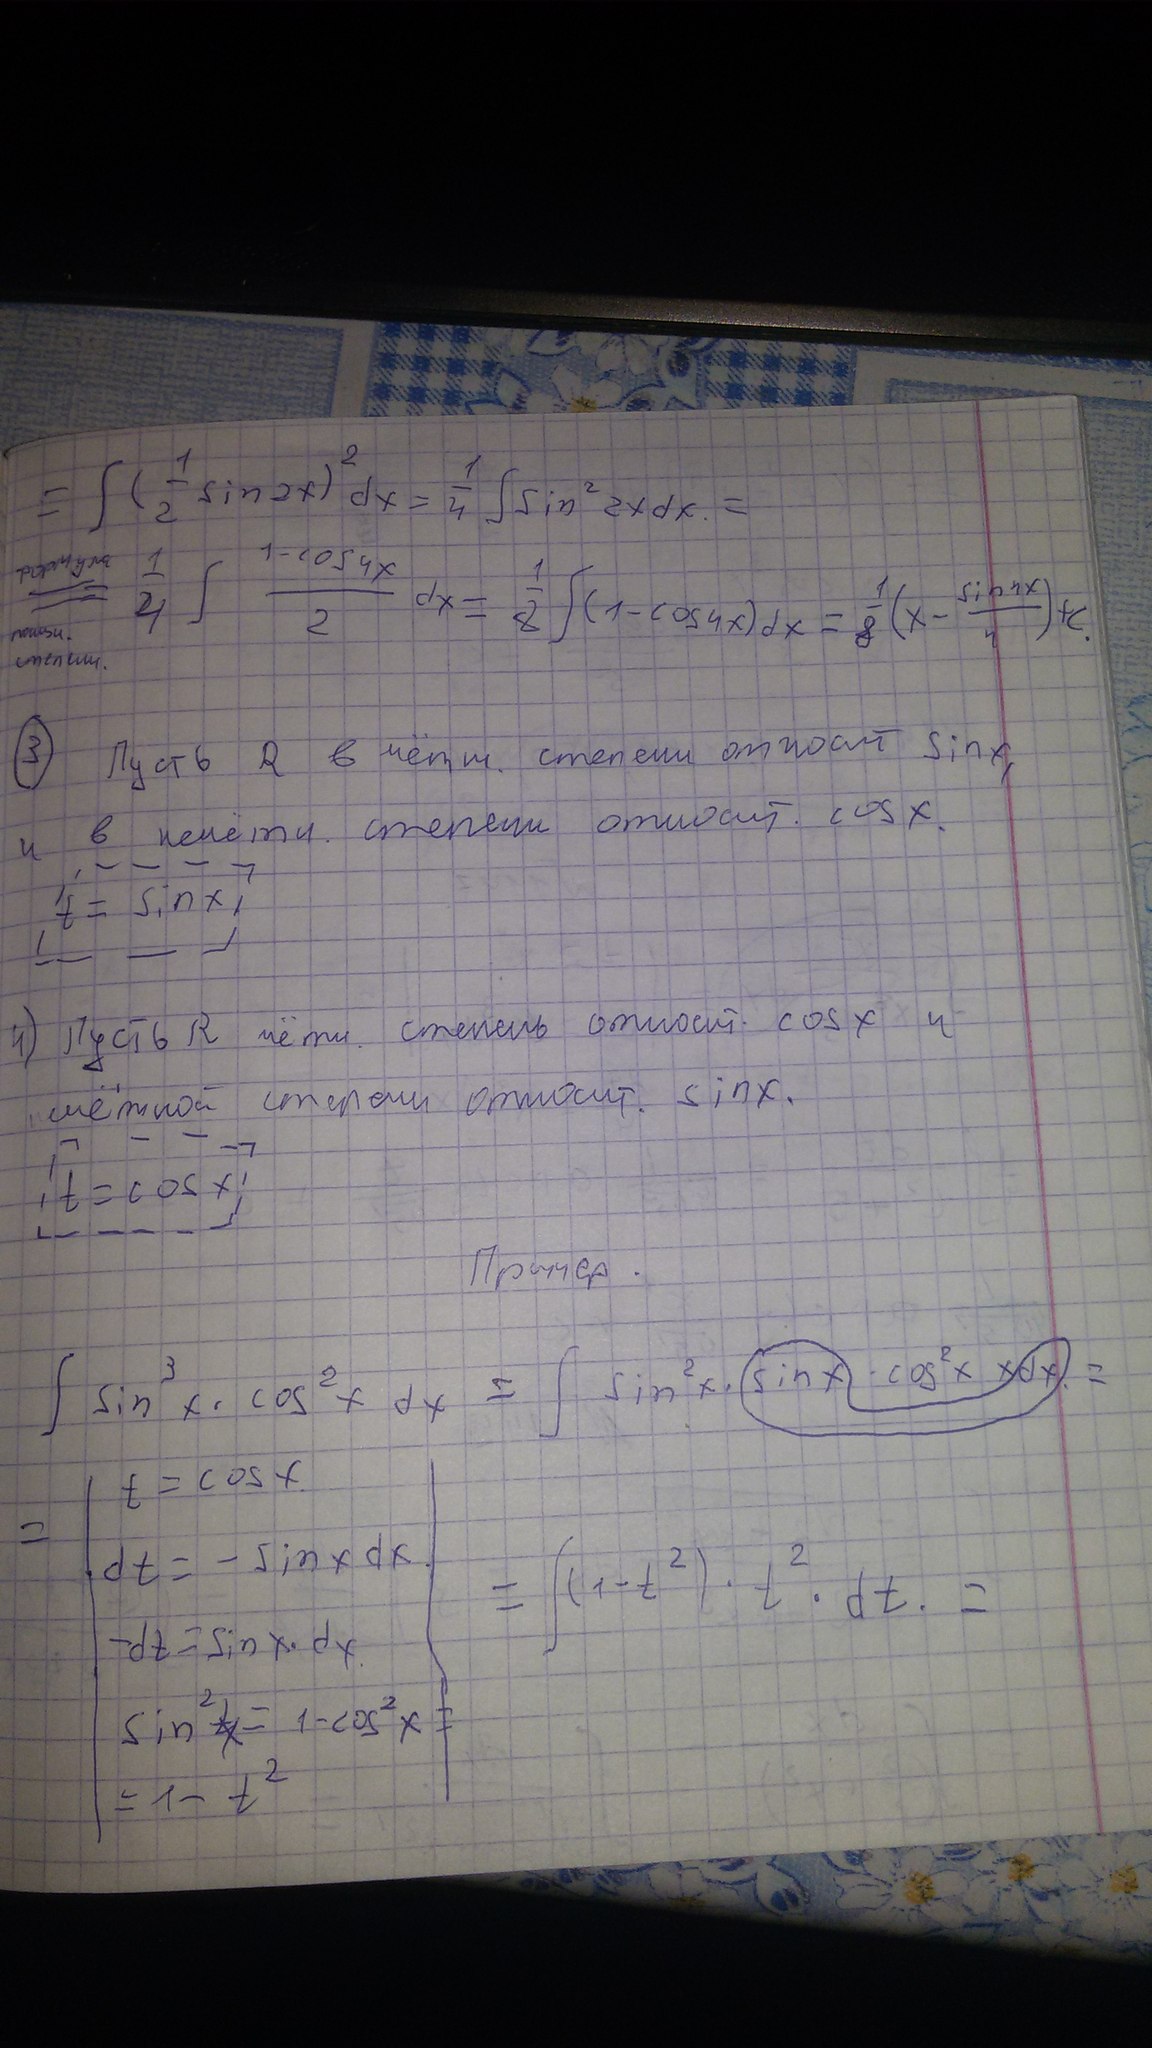 = ∫(1/2 sin2x)² dx = 1/4 ∫sin² 2x dx. =
формула пониж. степени. = 1/4 ∫ (1-cos4x)/2 dx = 1/8 ∫(1-cos4x)dx = 1/8 (x - sin4x/4)+C.
③ Пусть R в чётн. степени относит sinx,
и в нечётн. степени относит. cosx.
t = sinx
4) Пусть R чётн. степень относит. cosx и
степени относит. sinx.
t = cosx
Пример.
∫ sin³x · cos²x dx = ∫ sin²x · sinx · cos²x x dx. =
= | t = cosx
dt = - sinx dx.
-dt = sinx · dx.
sin²x = 1-cos²x =
= 1 - t² | = ∫(1-t²) · t² · dt. =